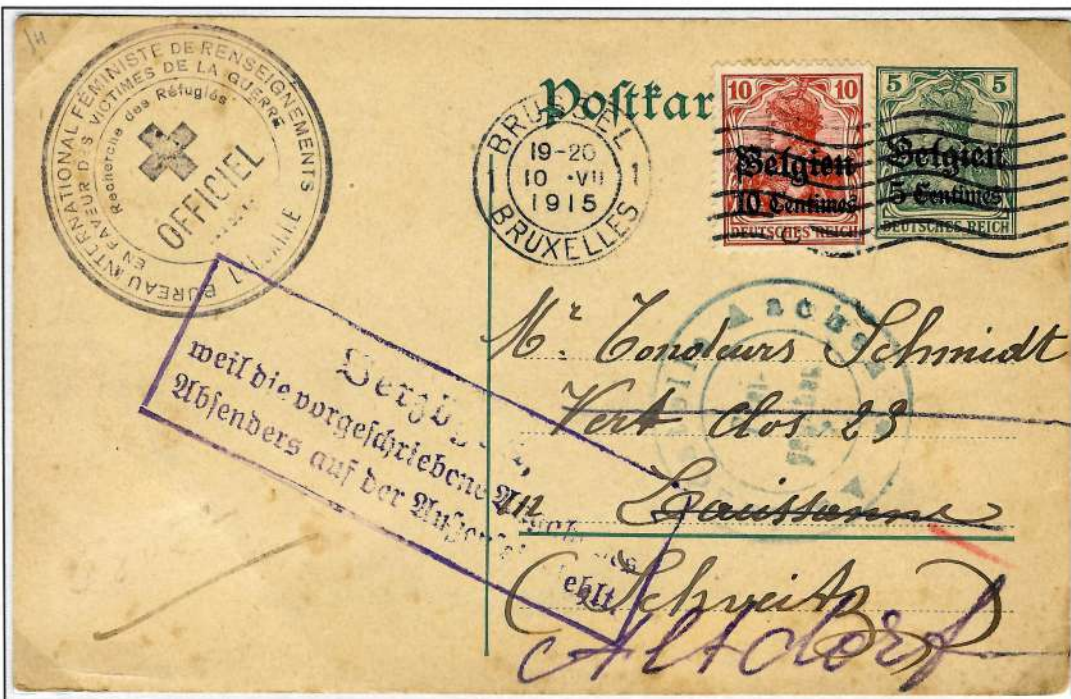 BUREAU INTERNATIONAL FÉMINISTE DE RENSEIGNEMENTS
EN FAVEUR DES VICTIMES DE LA GUERRE
Recherche des Réfugiés
OFFICIEL
Postkar
BRÜSSEL
19-20
10 ·VII
1 1
1915
BRUXELLES
10 10
Belgien
10 Centimes
DEUTSCHES REICH
5 5
Belgien
5 Centimes
DEUTSCHES REICH
weil die vorgeschriebene
Absenders auf der
fehlt
Mr. Schmidt
Vert Clos 23
Laussanne
(Schweitz)
Altdorf